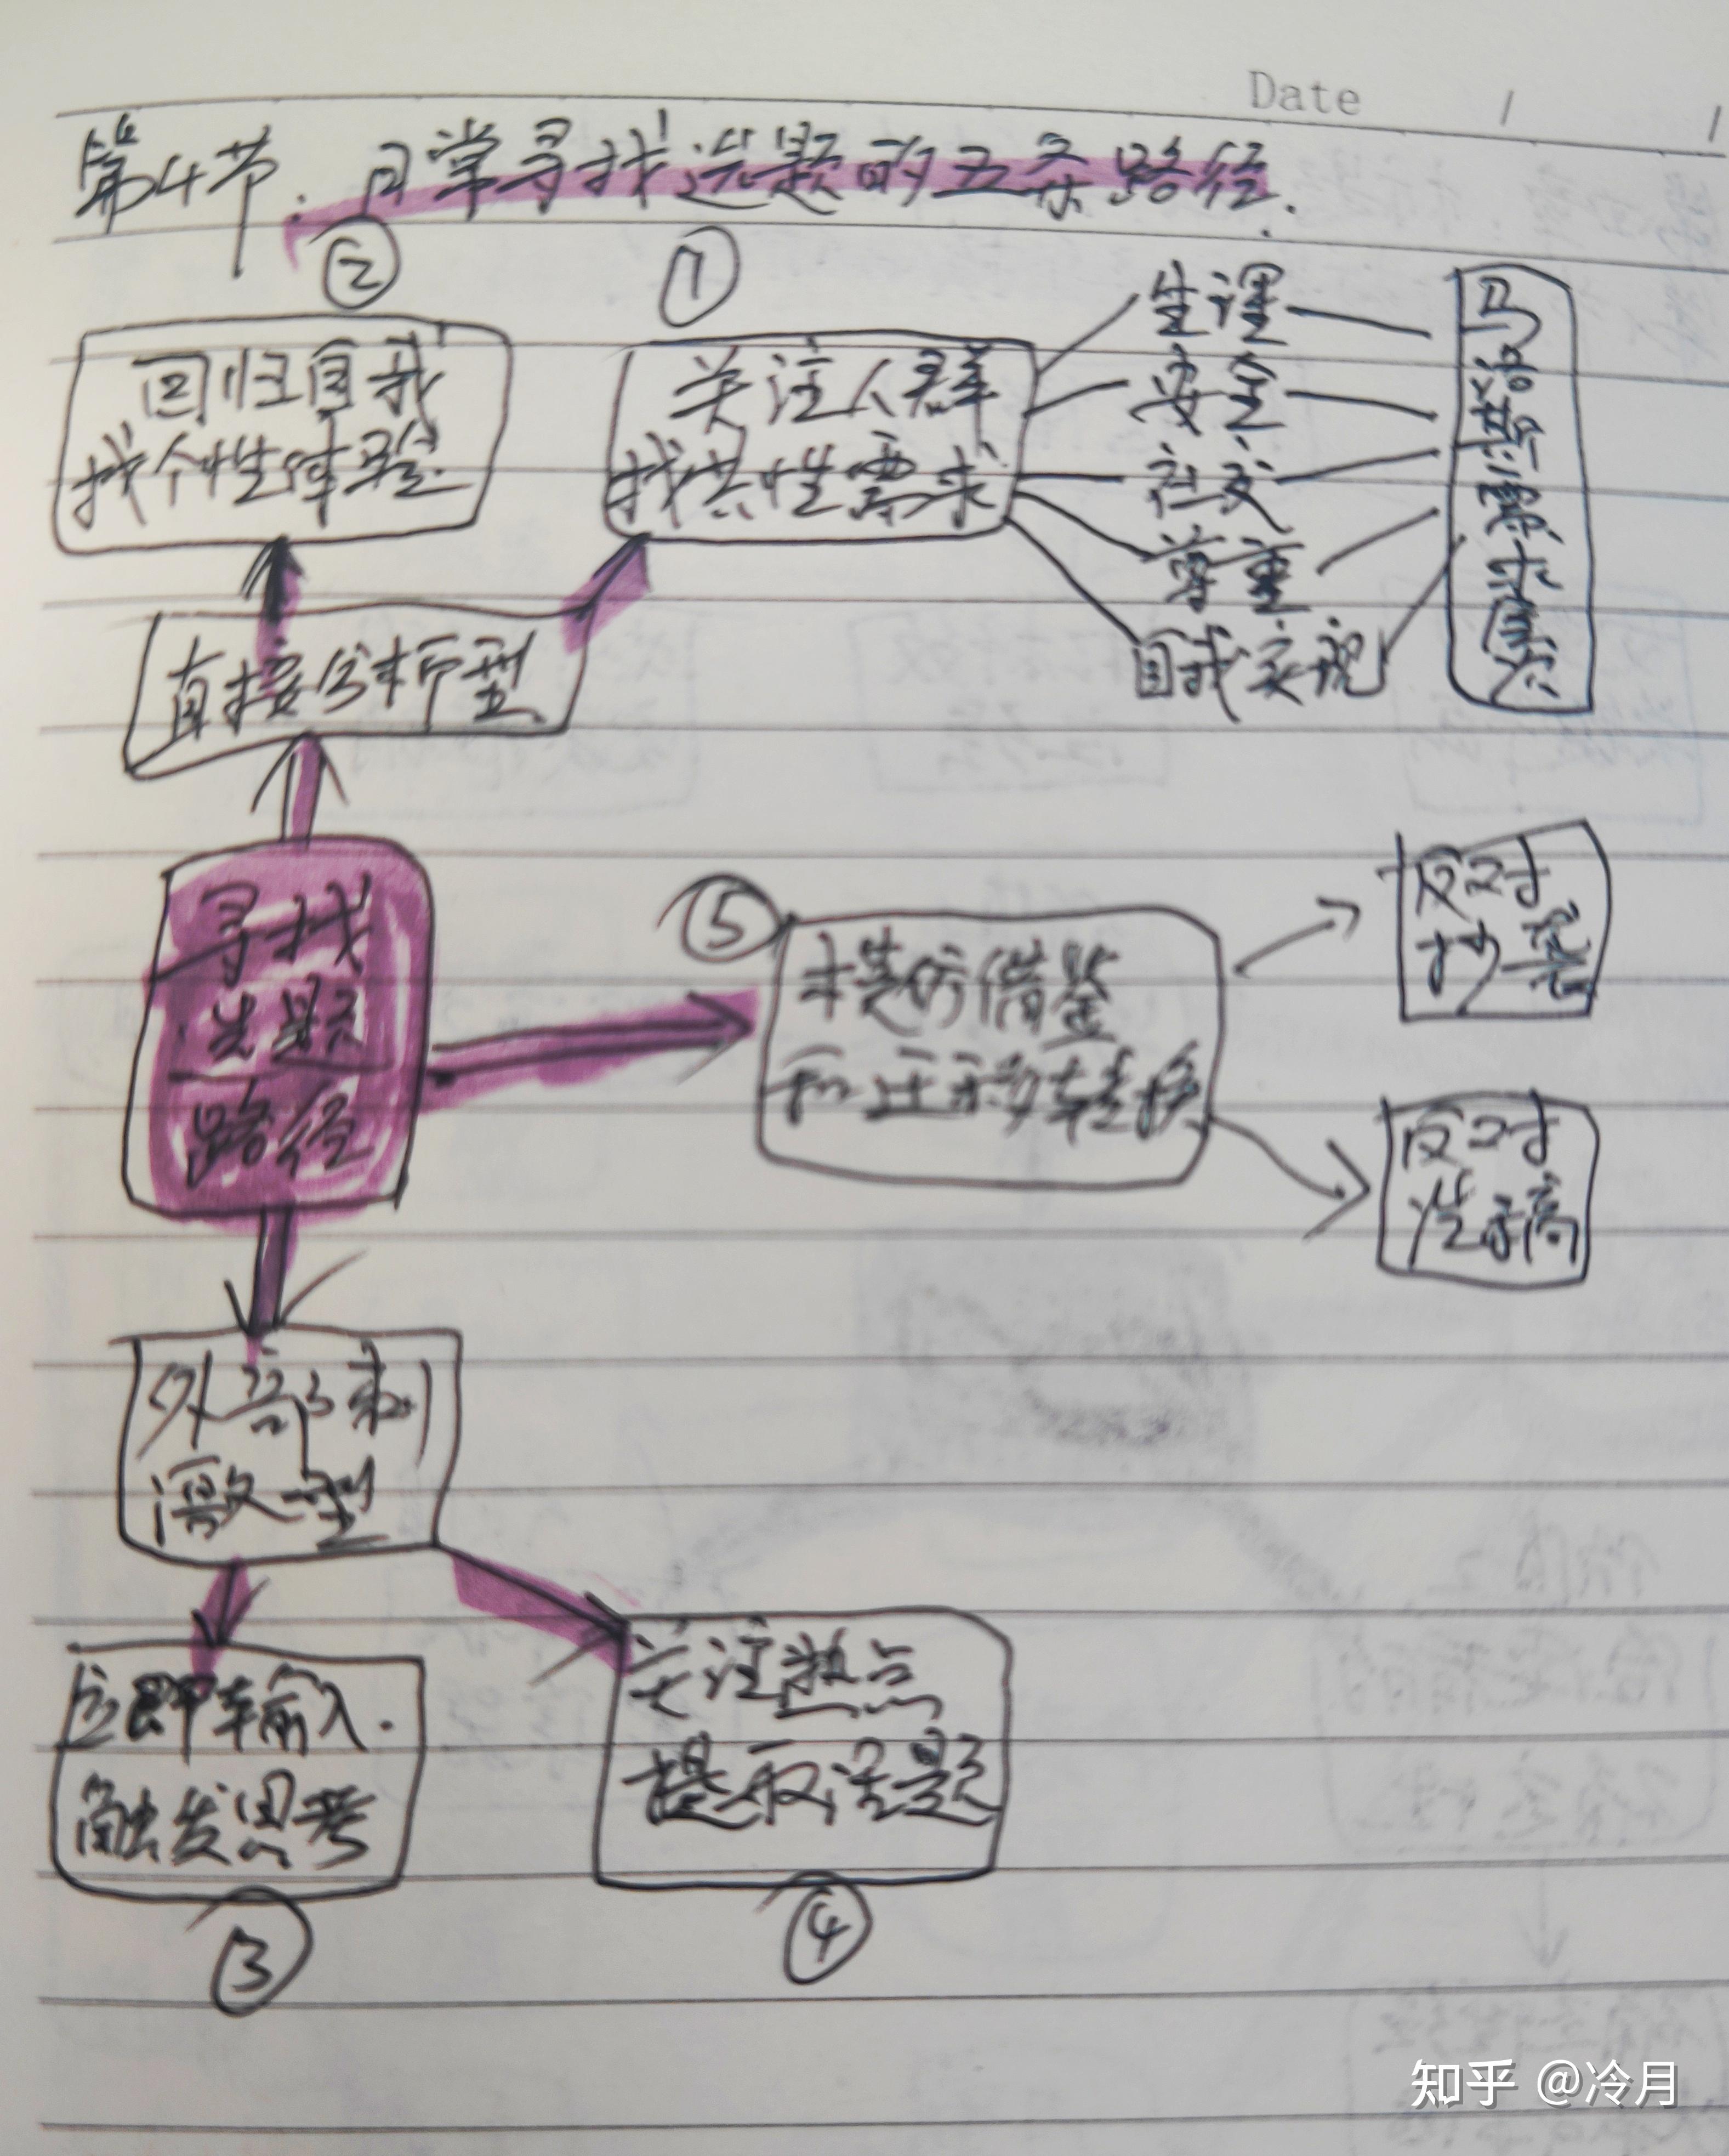 Date / /
第4节. 日常寻找选题的五条路径.
②
回归自我
找个性体验
①
关注人群
找共性需求
生理
安全
社交
尊重
自我实现
马洛斯需求层次
直接分析型
寻找
选题
路径
⑤
模仿借鉴
和迁移转换
反对
抄袭
反对
洗稿
外部刺
激型
立即车输入.
触发思考
③
关注热点
提取话题
④
知乎 @冷月